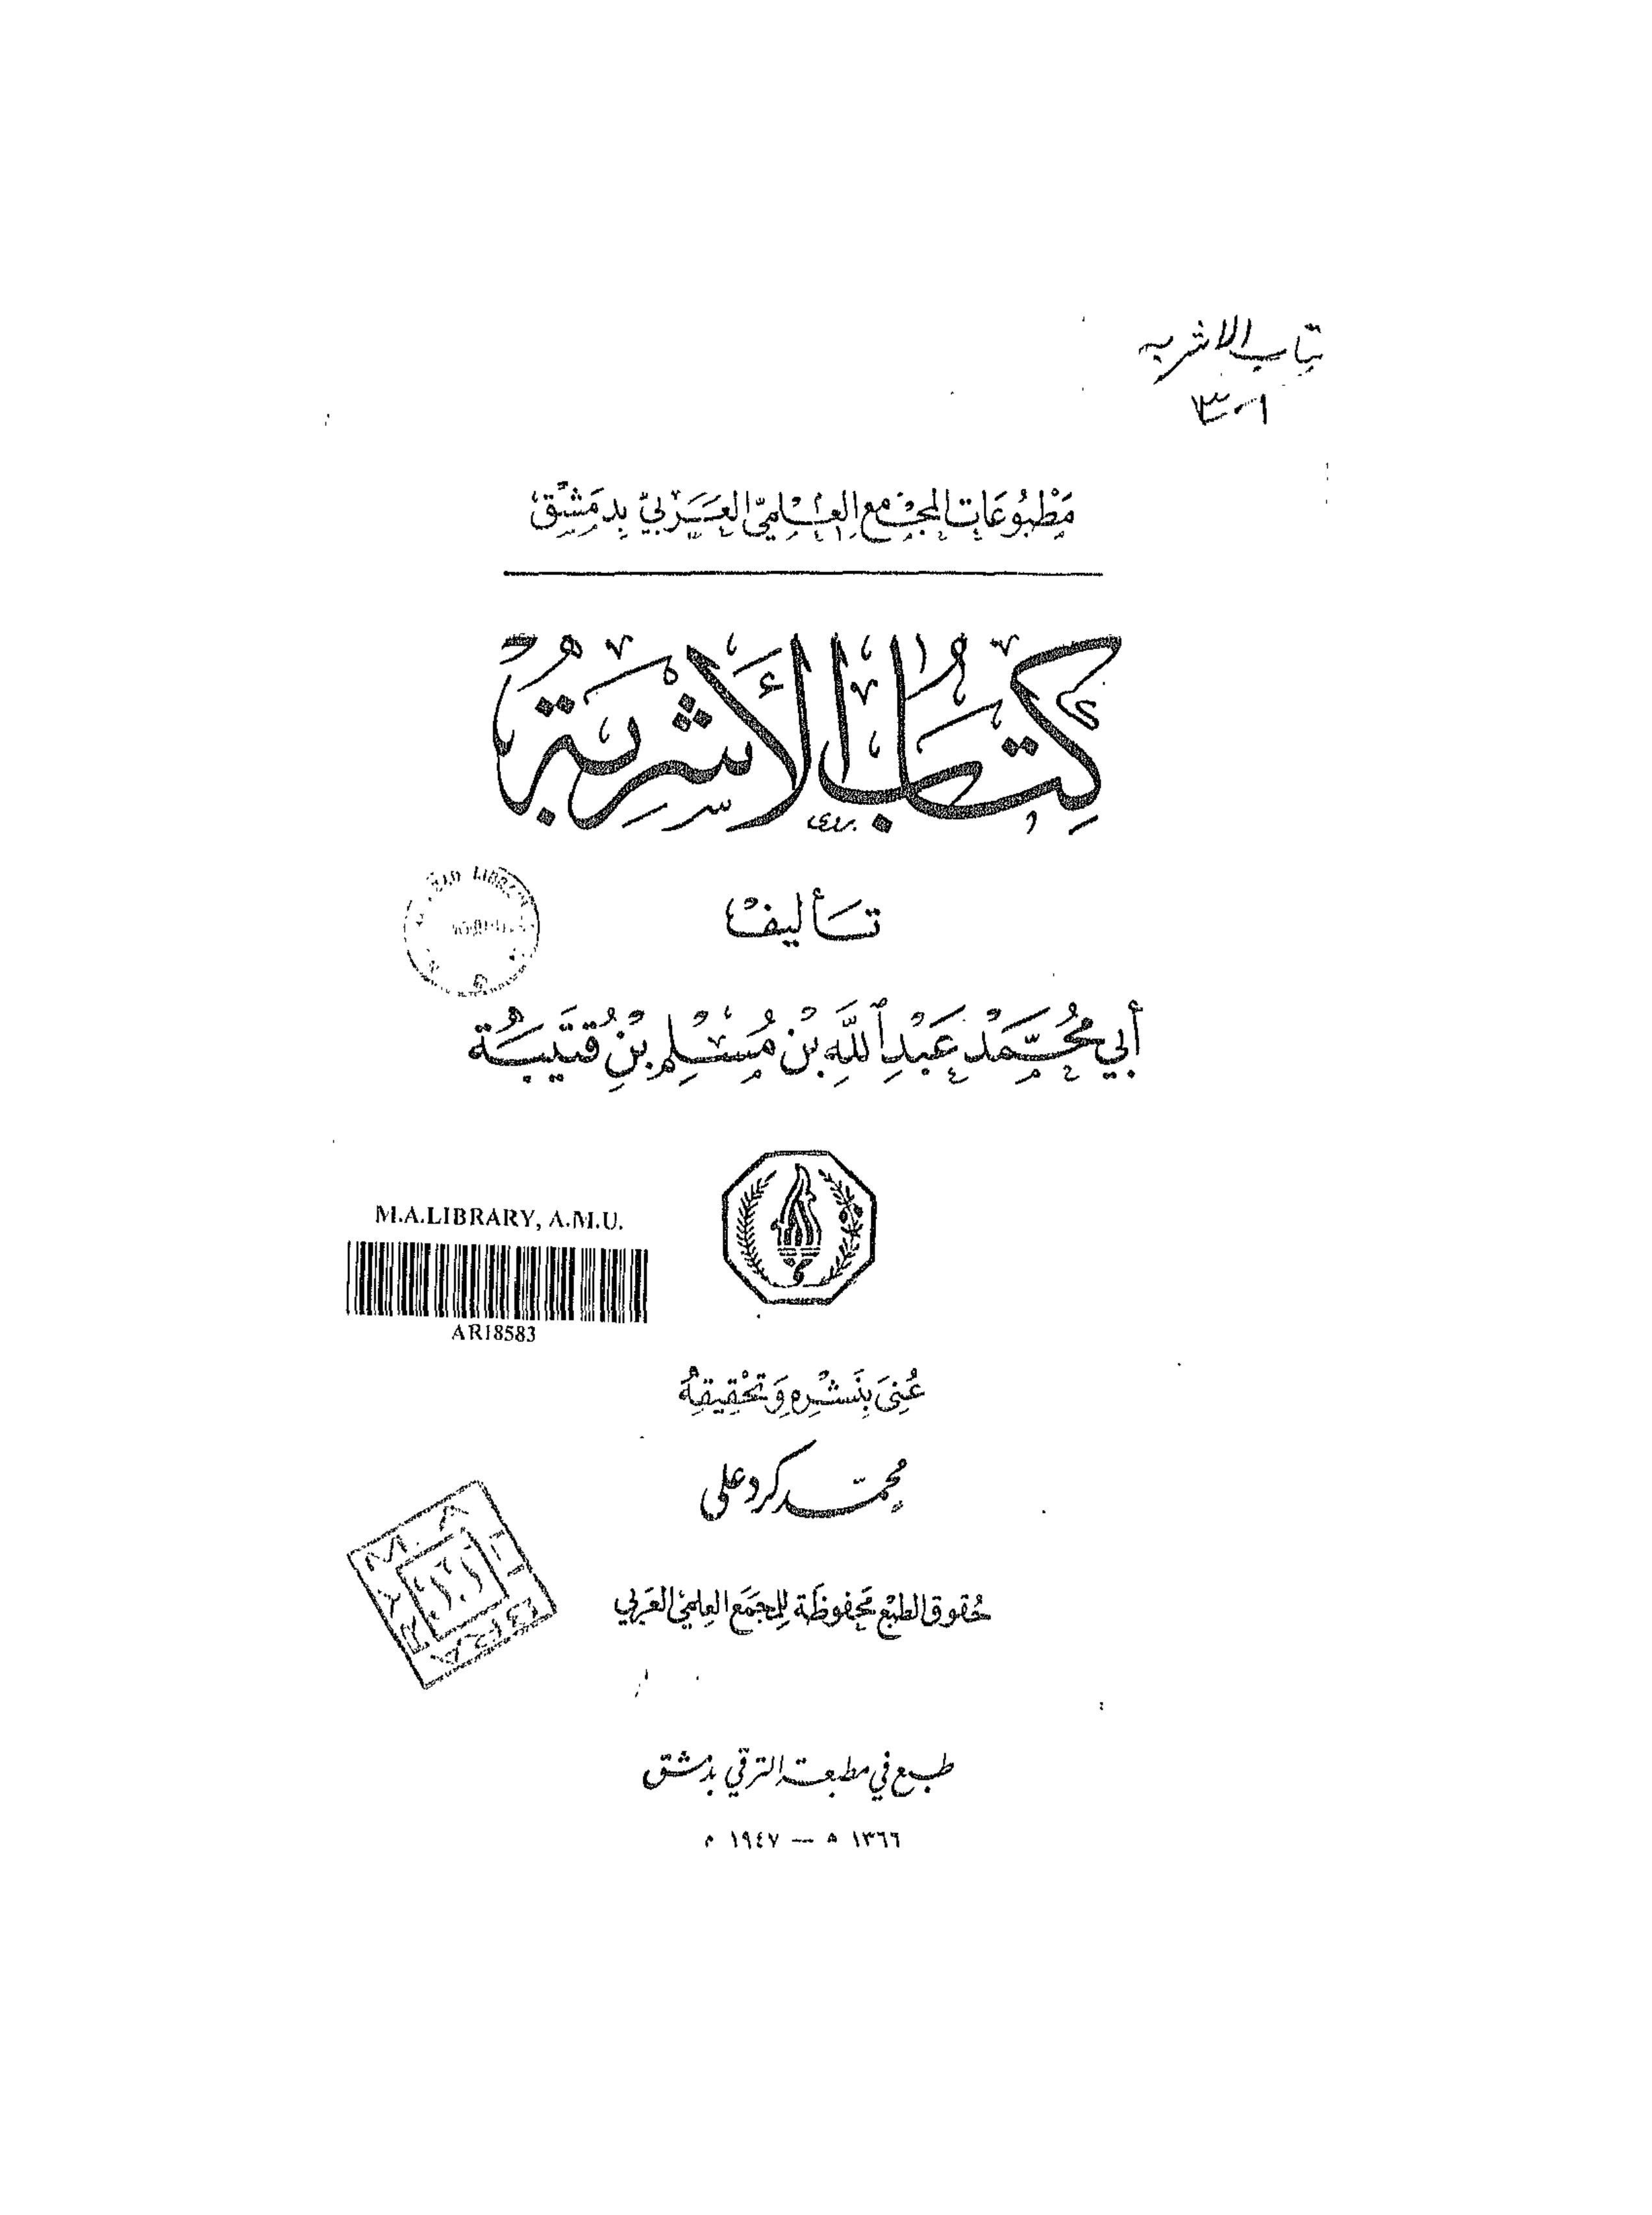 كتاب الاشربه
مَطبُوعَات المجمَع العِلميّ العَرَبيّ بدِمَشق
كِتَابُ الأَشْرِبَةِ
تأليف
أبي مُحَمَّد عَبْدِ ٱللَّهِ بْن مُسْلِم بْنِ قُتَيبَة
M.A.LIBRARY, A.M.U.
AR18583
عُنِيَ بِنَشْرِهِ وَتَحْقِيقِهِ
محمّد كرد علي
حُقوق الطبْع مَحفوظَة لِلمجمَع العِلمي العَرَبي
طبع في مطبعة الترقي بدمشق
١٣٦٦ ه — ١٩٤٧ م